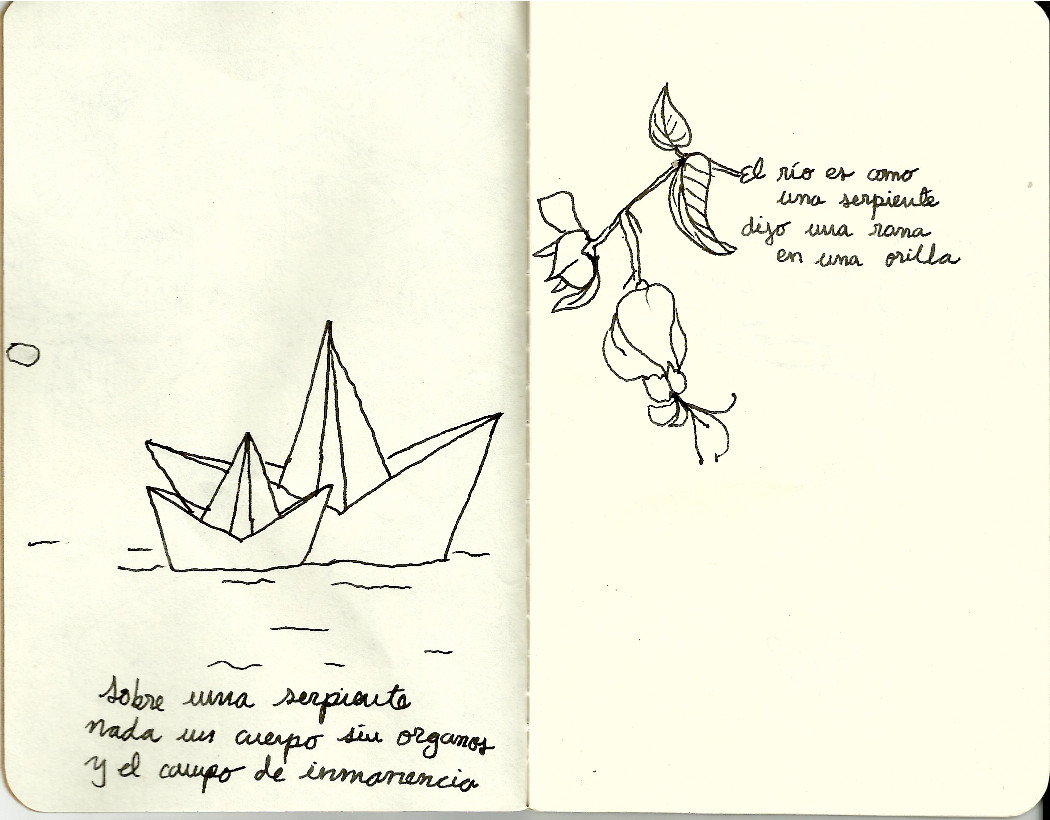 Sobre una serpiente
nada un cuerpo sin organos
y el campo de inmanencia
El río es como
una serpiente
dijo una rana
en una orilla